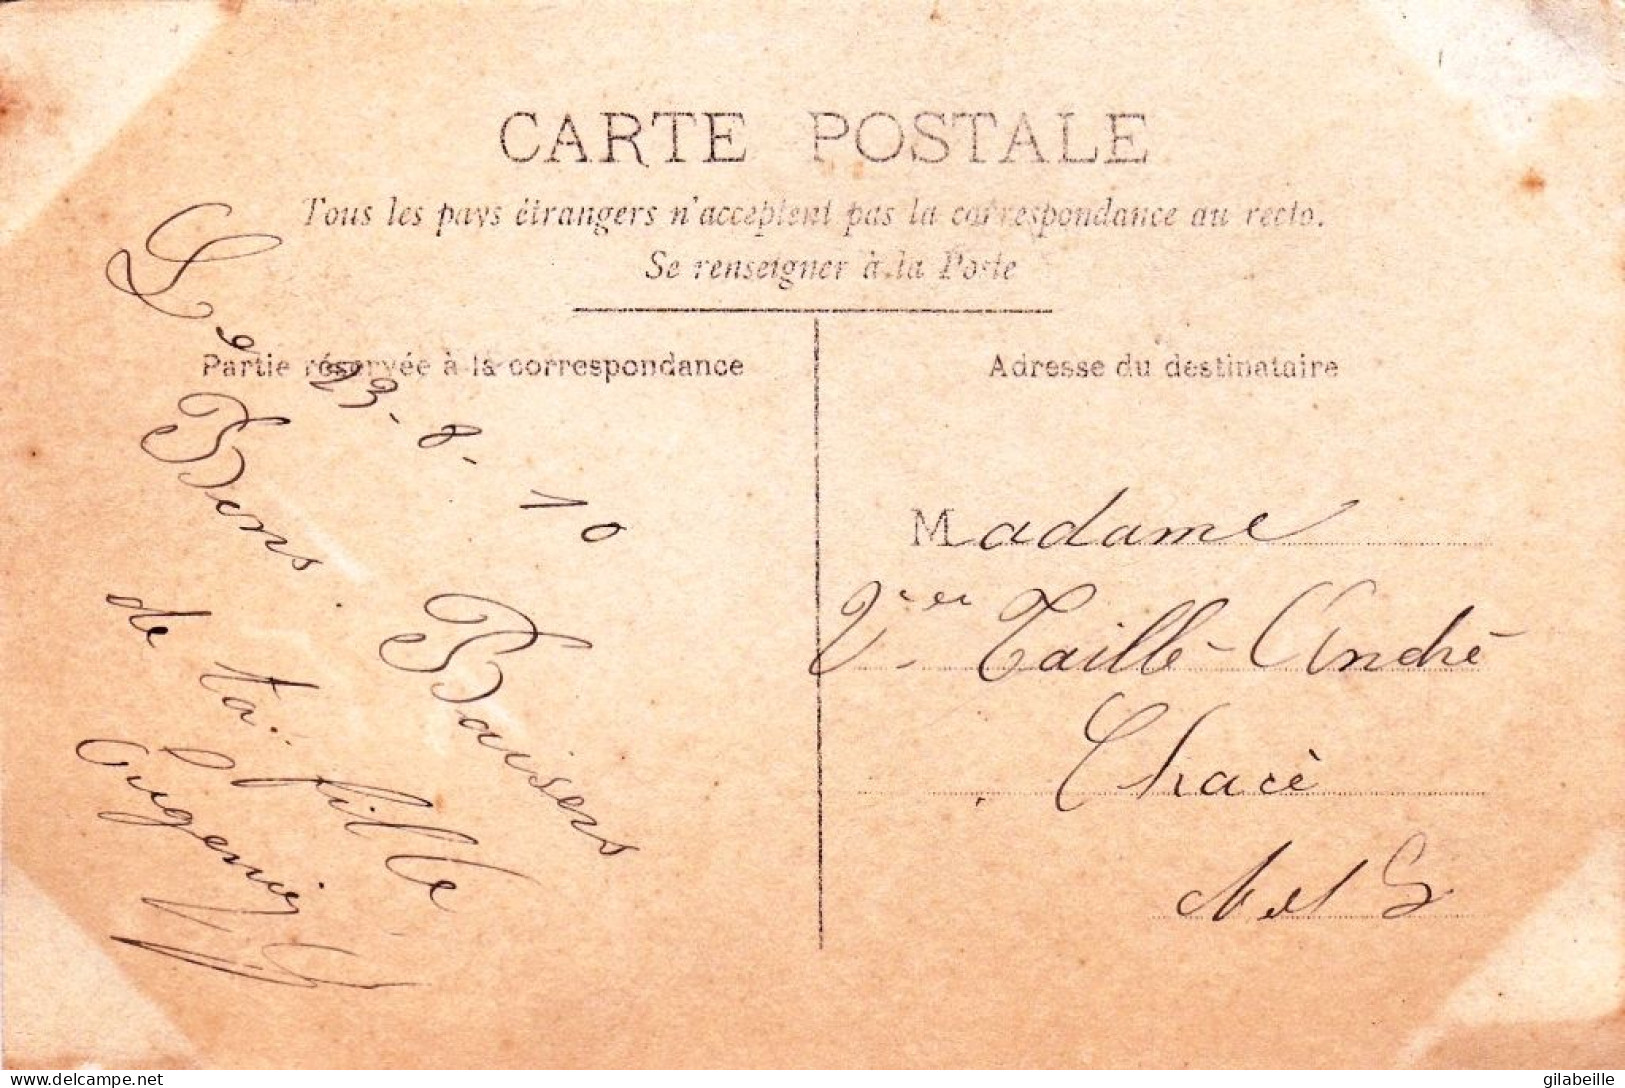 CARTE POSTALE
Tous les pays étrangers n'acceptent pas la correspondance au recto.
Se renseigner à la Poste
Partie réservée à la correspondance
Adresse du destinataire
Le 23-8-10
Bons Baisers
de ta fille
Eugénie
Madame
Vve Taillé-André
Chacé
M et L
delcampe.net
gilabeille